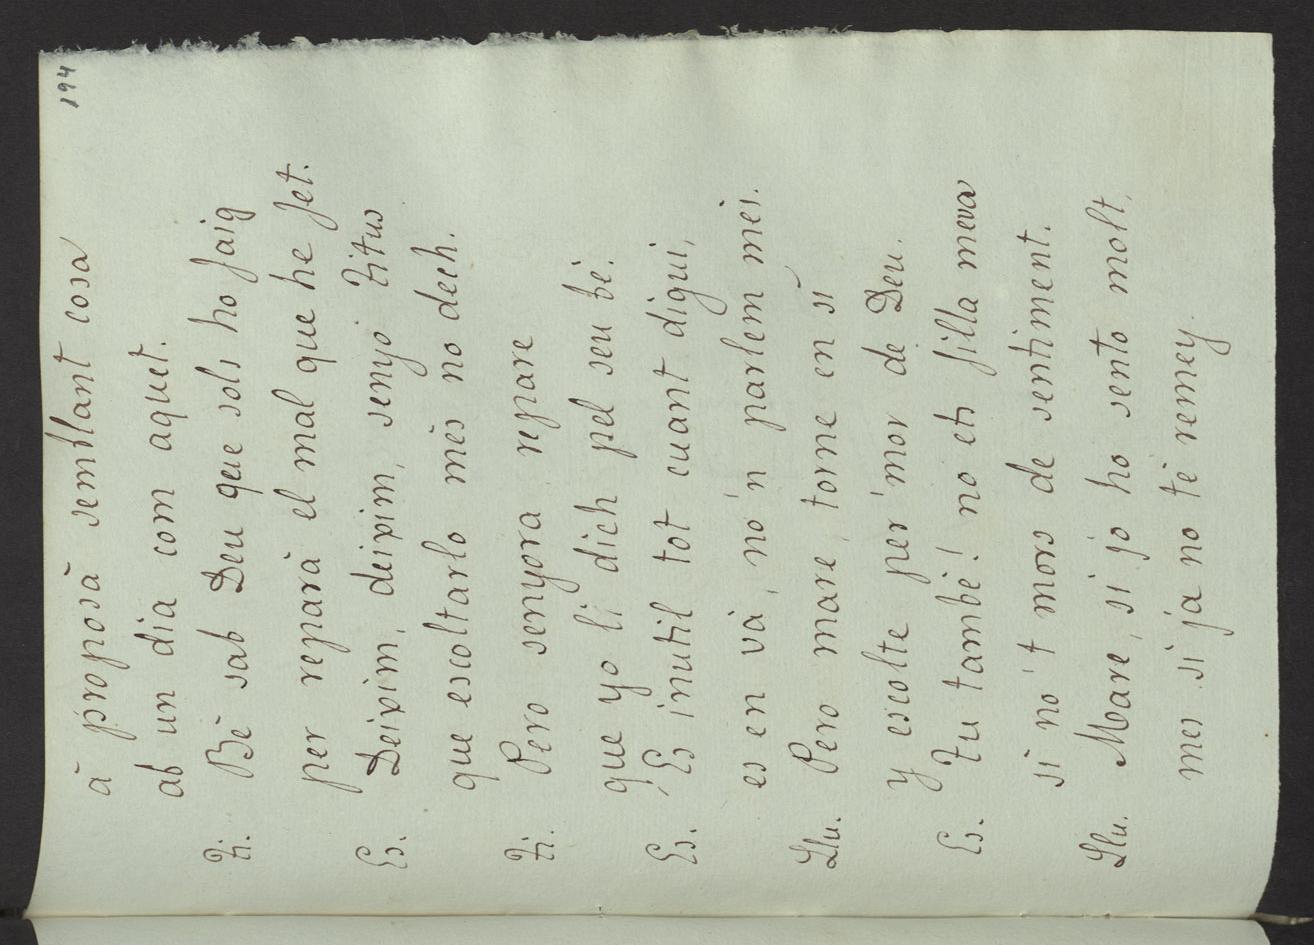 194
à proposà semblant cosa
ab un dia com aquet.
Ti. Bè sab Deu que sols ho faig
per reparà el mal que he fet.
Es. Deixim, deixim, senyó Titus
que escoltarlo mès no dech.
Ti. Pero senyora repare
que yo li dich pel seu bé.
Es. Es inutil tot cuant digui,
es en và, no'n parlem mès.
Llu. Pero mare, torne en sì
y escolte per 'mor de Deu.
Es. Tu també! no ets filla meva
si no't mors de sentiment.
Llu. Mare, si jo ho sento molt,
mes si ja no té remey.